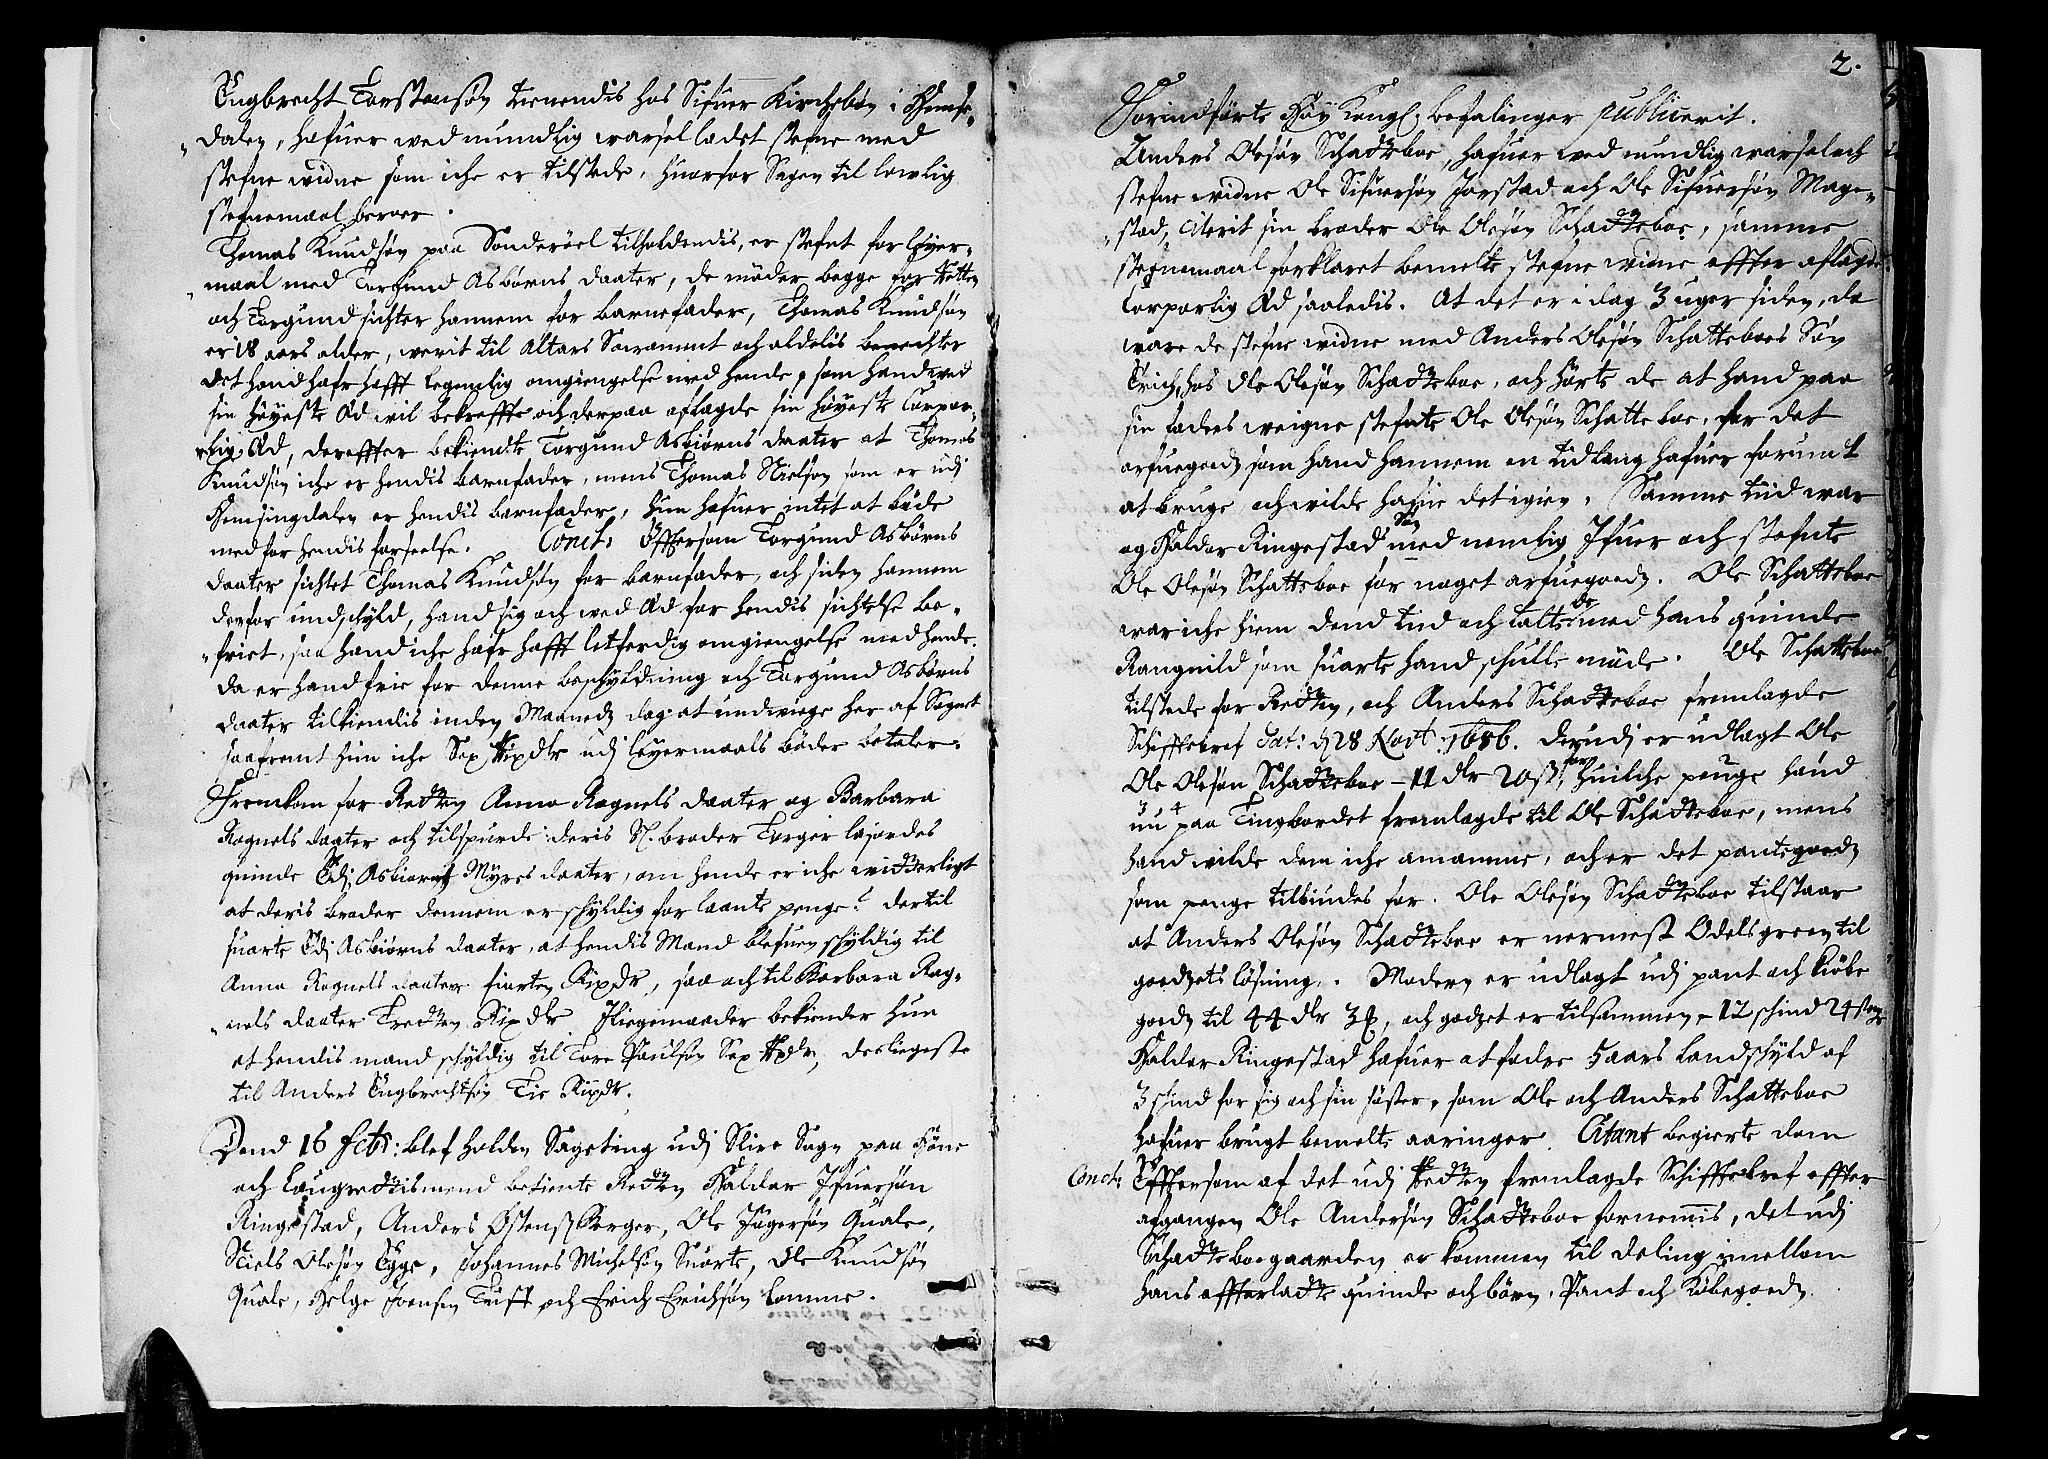 Engbrecht Torstensøn tienendis hos Sifuer Kirchebøn i Hemse-
dalen, hafuer wed mundlig warsel ladet stefne med
stefne widne som iche er tilstede, huorfor Sagen til lowlig
stefnemaal beroer.
Thomas Knudsøn paa Sonderøel tilholdendis, er stefnt for leyer-
maal med Torgund Asbørns daater, de møder begge for Retten
och Torgund sichter hannem for barnefader, Thomas Knudsøn
er 18 aars alder, werit til Altars Sacrament och aldelis benechter
det hand hafr hafft legemlig omgiengelse med hende, som hand wed
sin høyeste Æd wil bekreffte och derpaa aflagde sin høyeste Corpor-
lig Æd, dereffter bekiendte Torgund Asbiørns daater at Thomas
Knudsøn iche er hendis barnfader, mens Thomas Nielsøn som er udj
Hemsingdalen er hendis barnfader, hun hafuer intet at bøde
med for hendis forseelse. Conct: Effter som Torgund Asbørns
daater sichtet Thomas Knudsøn for barnfader, och siden hannem
derfor undschyld, hand sig och wed Æd for hendis sichtelse be-
friet, saa hand iche hafr hafft letferdig omgiengelse med hende.
da er hand frie for denne beschyldning och Torgund Asbørns
daater tilkiendis inden Maanedz dag at undwiege her af Sognet
saafremt hun iche Sex Rixdlr udj leyermaals bøder betaler.
Fremkom for Retten Anna Ragnels daater og Barbara
Ragnels daater och tilspurde deris Sl. broder Torger lajordes
quinde Edj Asbiørns Myres daater, om hende er iche witterligt
at deris broder dennem er schyldig for laante penge? dertil
suarte Edj Asbiørns daater, at hendis Mand blefuen schyldig til
Anna Ragnels daater fiorten Rixdr, saa och til Barbara Rag-
nels daater Tretten Rixdlr. Jliegemaader bekiender hun
at hendis mand schyldig til Tore Paulsøn Sex Rixdlr, desliegeste
til Anders Engbrechtsøn Tie Rixdr.
Dend 16 Febr: blef holden Sageting udj Slire Sogn paa Høne
och Laugrettismend betiente Retten Haldor Jfuersøn
Ringestad, Anders Østens. Berger, Ole Jugersøn Quale,
Niels Olesøn Egge, Johannes Michelsøn Suarte, Ole Knudsøn
Quale, Helge Joensen Tuft och Erich Erichsøn Lomme.
2.
Forindførte Høy Kongl. befalinger publicerit.
Anders Olesøn Schattebøe, hafuer wed mundlig warsel och
stefne widne Ole Sifuersøn Jorstad och Ole Sifuersøn Mage-
stad, citerit sin broder Ole Olesøn Schattebøe, samme
stefnemaal forklaret bemelte stefne widne effter aflagde
Corporlig Æd saaledis. At det er i dag 3 uger siden, da
ware de stefne widne med Anders Olesøn Schattebøes Søn
Erich, hos Ole Olesøn Schattebøe, och hørte de at hand paa
sin faders weigne stefnte Ole Olesøn Schattebøe, for det
arfuegodz som hand hannem en tidlang hafuer forunt
at bruge, och wilde hafue det igien. Samme tid war
og Haldor Ringestad Søn med nemlig Jfuer och stefnte
Ole Olesøn Schattebøe for noget arfuegodz. Ole Schattebøe
war iche hiem dend tid och talte de med hans quinde
Rangnild som suarte hand schulle møde. Ole Schattebøe
tilstede for Retten, och Anders Schattebøe fremlagde
Schifftebref dat: d 28 Novt. 1686. derudj er udlagt Ole
Ole Olesøn Schattebøe – 11 dlr 20 s, for huilche penge hand
nu paa Tingbordet fremlagde til Ole Schattebøe, mens
hand wilde dem iche anamme, och er det pantegodz
som penge tilbiudes for. Ole Olesøn Schattebøe tilstaar
at Anders Olesøn Schattebøe er nermest Odels green til
goedzets løsning. Moderen er udlagt udj pant och kiøbe
goedz til 44 dlr 3 , och godzet er tilsammen – 12 schind 24
Haldor Ringestad hafuer at fodre 5 aars landschyld af
3 schind for sig och sin søster, som Ole och Anders Schattebøe
hafuer brugt bemelte aaringer. Citant begierte dom
Conct: Effter som af det udj Retten fremlagde Schifftebref effter
afgangen Ole Andersøn Schattebøe fornemmis, det udj
Schattebøegaarden er kommen til deling imellom
hans effterladte quinde och børn, Pant och Kiøbegoedz.